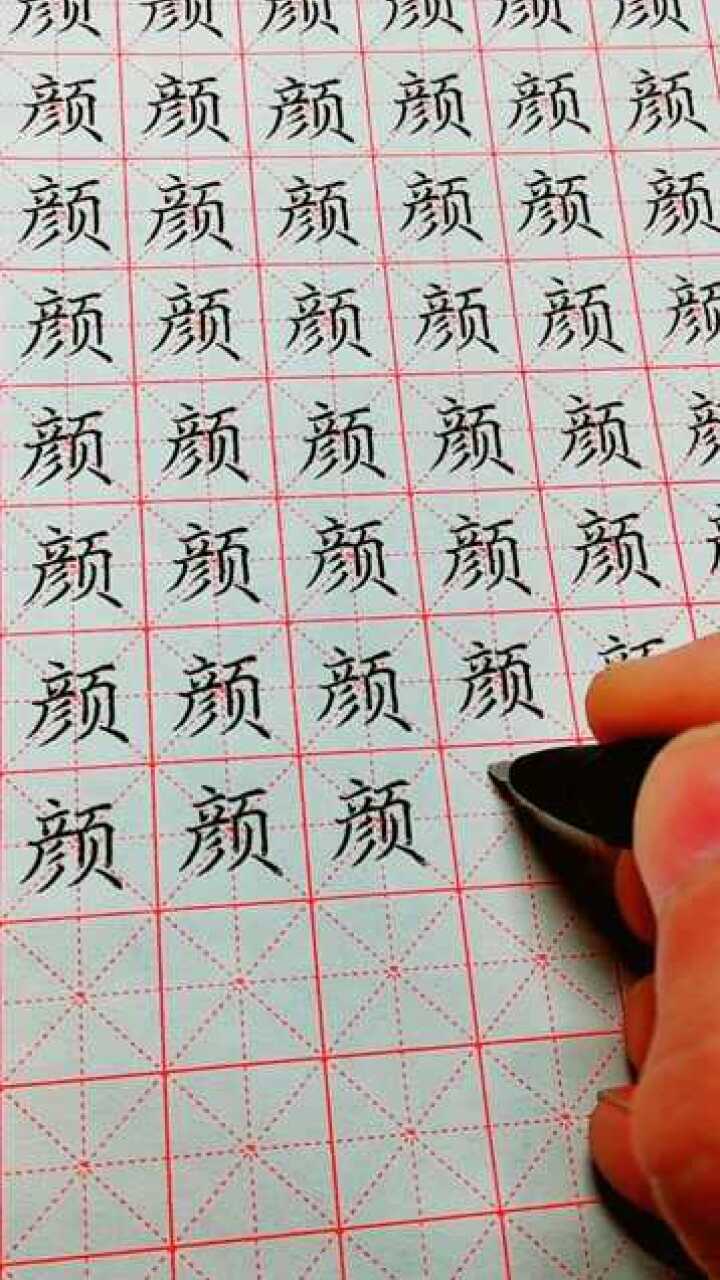 颜 颜 颜 颜 颜 颜
颜 颜 颜 颜 颜 颜
颜 颜 颜 颜 颜 颜
颜 颜 颜 颜 颜 颜
颜 颜 颜 颜 颜 颜
颜 颜 颜 颜 颜
颜 颜 颜 颜 颜
颜 颜 颜